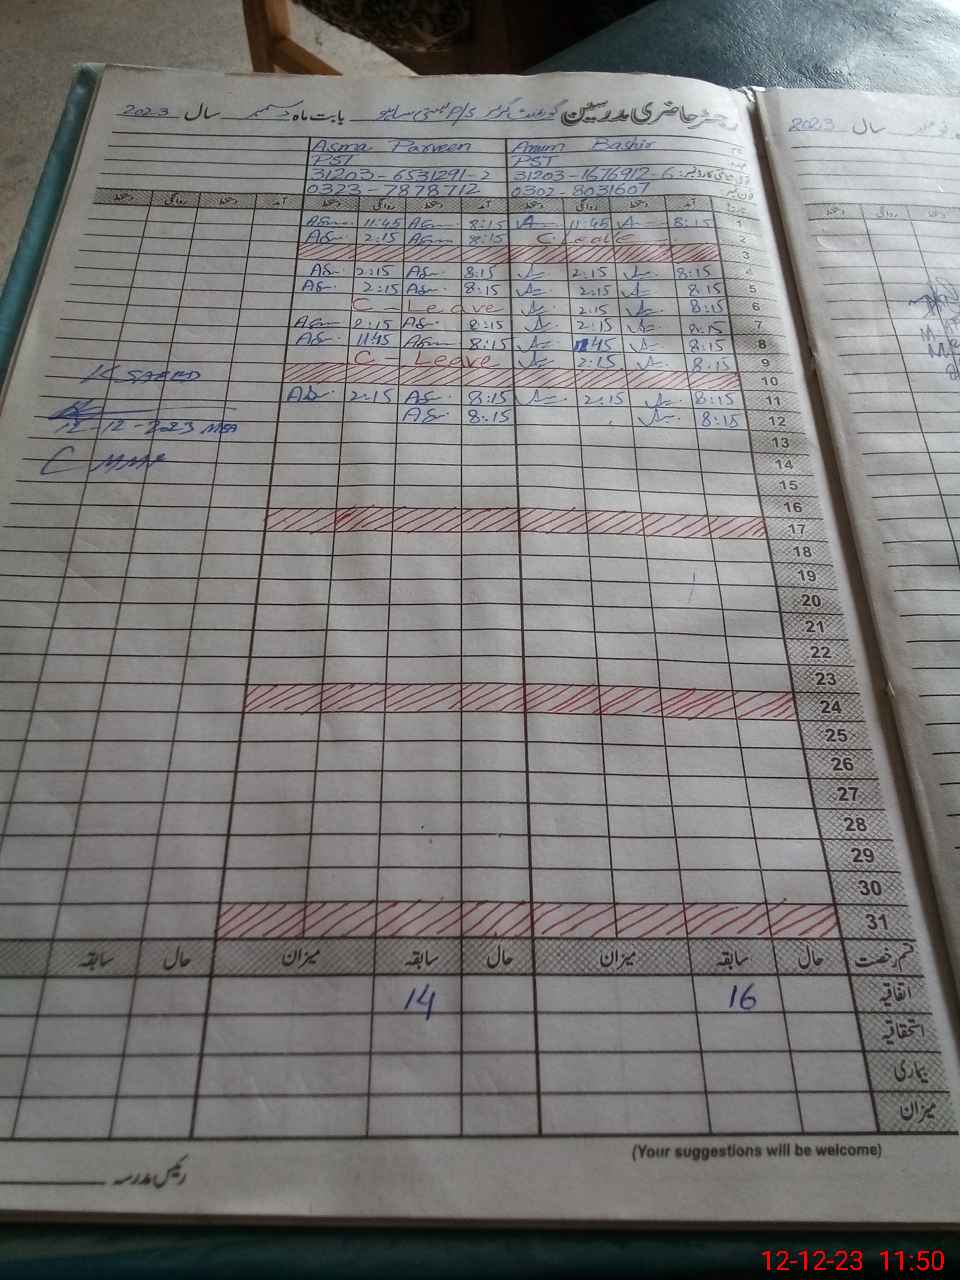 رجسٹر حاضری مدرسین گورنمنٹ گرلز P/S بستی سابقہ بابت ماہ دسمبر سال 2023
Asma Parveen Anum Bashir
PST PST
31203-6531291-2 31203-1676912-6
0323-7878712 0302-8031607
دستخط روانگی دستخط آمد دستخط روانگی دستخط آمد دستخط روانگی دستخط آمد
11:45 8:15 11:45 8:15 1
2:15 8:15 C Leave 2
3
2:15 8:15 2:15 8:15 4
2:15 8:15 2:15 8:15 5
C - Leave 2:15 8:15 6
2:15 8:15 2:15 8:15 7
11:45 8:15 11:45 8:15 8
C - Leave 2:15 8:15 9
10
2:15 8:15 2:15 8:15 11
8:15 8:15 12
K SAEED
12-12-2023 MEA
13
14
15
16
17
18
19
20
21
22
23
24
25
26
27
28
29
30
31
سابقہ حال میزان سابقہ حال میزان سابقہ حال قسم رخصت
14 16 اتفاقیہ
استحقاقیہ
بیماری
میزان
(Your suggestions will be welcome)
رئیس مدرسہ
سال 2023
دستخط روانگی دستخط
12-12-23 11:50